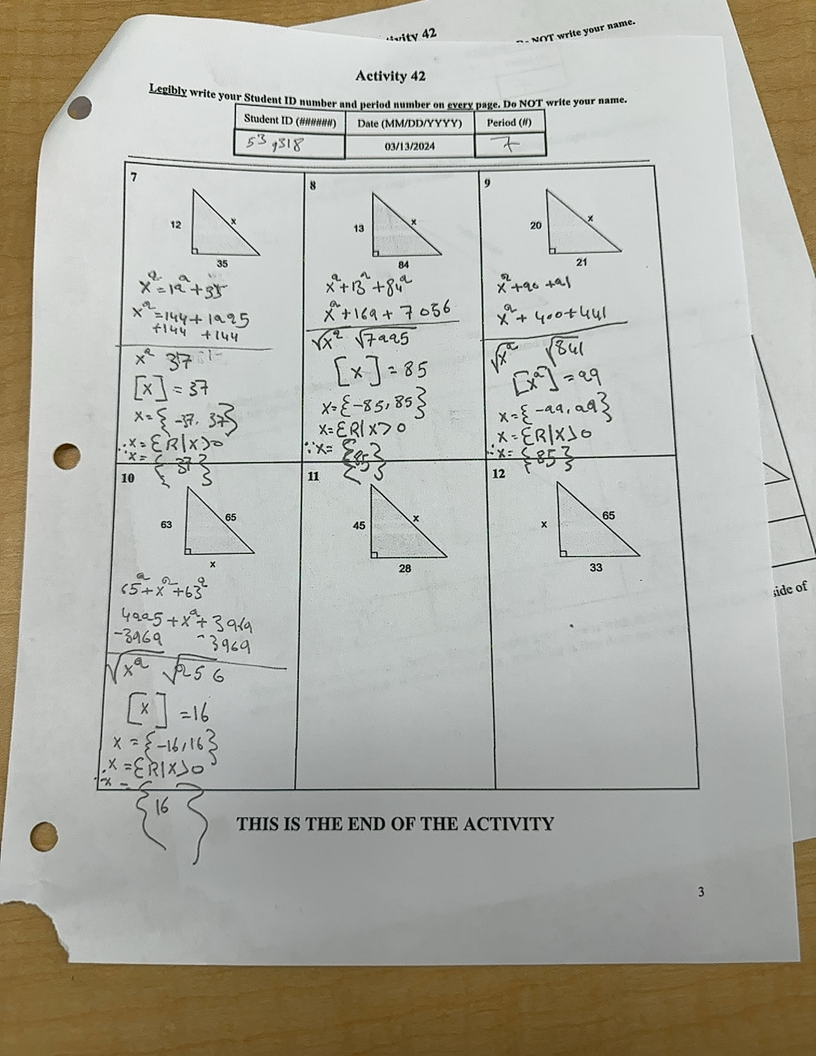 tivity 42
NOT write your name.
Activity 42
Legibly write your Student ID number and period number on every page. Do NOT write your name.
Student ID (######) Date (MM/DD/YYYY) Period (#)
53,318 03/13/2024 7
7
12
x
35
x²=12²+35
x²=144+1225
+144 +144
x² 37
[x] = 37
x={-37, 37}
∴x={R|X>0
x= {37}
8
13
x
84
x²+13²+84²
x²+169+7056
√x² √7225
[x] = 85
x={-85,85}
x={R|X>0
∴x= {85}
9
20
x
21
x²+20+21
x²+400+441
√x² √841
[x²] = 29
x={-29,29}
x={R|X>0
∴x={85}
10
63
65
x
65²+x²+63²
4225+x²+3969
-3969 -3969
√x² √256
[x] =16
x={-16,16}
x={R|X>0
∴x= {16}
11
45
x
28
12
x
65
33
side of
THIS IS THE END OF THE ACTIVITY
3